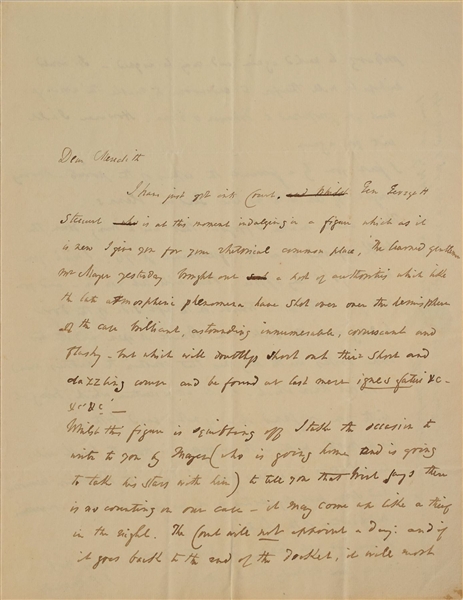 Dear Meredith
I have just got into Court.
Stewart is at this moment indulging in a figure which as it
is new I give you for your rhetorical common place, "The learned gentleman
Mr Mayer yesterday brought out a host of authorities which like
the late atmospheric phenomena have shot over the hemisphere
of the case brilliant, astounding innumerable, coruscant and
flashy - but which will doubtless shoot out their short and
dazzling course and be found at last mere ignes fatui &c-
&c &c" -
Whilst this figure is squibbing off I take the occasion to
write to you by Mayer (who is going home and is going
to take his stars with him) to tell you that Wirt says there
is no counting on our case - it may come up like a thief
in the night. The Court will not appoint a day: and if
it goes back to the end of the Docket, it will most